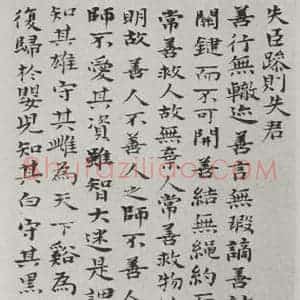 失臣躁則失君
善行無轍迹善言無瑕謫善
關鍵而不可開善結無繩約
常善救人故無棄人常善救物
明故善人不善人之師不善人
師不愛其資雖智大迷是謂
知其雄守其雌為天下谿為
復歸於嬰兒知其白守其黑
Shufaziliao.com